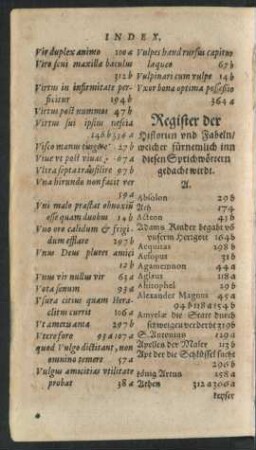 INDEX.
Vir duplex animo 100 a
Viro scui maxillæ baculus
312 b
Virtus in infirmitate perficitur 194 b
Virtus post nummos 47 b
Virtus sui ipsius
146 b
Visco manus 27 b
Viue vt post viuas 67 a
Vltra septa trãsilire 97 b
Vna hirundo non facit ver
59 a
Vni malo præstat obnoxiũ
esse quam duobus 14 b
Vno ore calidum & frigidum efflare 197 b
Vnus Deus plures amici
12 b
Vnus vir nullus vir 63 a
Vota senum 93 a
Vsura citius quam Heraclitus currit 106 a
Vt ameris ama 297 b
Vtere foro 93 a 107 a
quod Vulgo dictitant, non
omnino temere 57 a
Vulgus amicitias vtilitate
probat 38 a
Vulpes haud rursus capitur
laqueo 67 b
Vulpinari cum vulpe 14 b
Vxor bona optima possessio
364 a
Register der
Historien vnd Fabeln/
welcher fürnemlich inn
diesen Sprichwörtern
gedacht wirdt.
A.
Absolon 29 b
Ach 174
Acteon 41 b
Adams Kinder begabt võ
vnserm Herrgott 164 b
Acquitas 298 b
Aesopus 31 b
Agamemnon 444 a
Aglaus 118 a
Ahitophel 29 b
Alexander Magnus 45 a
94 b 118 a 154 b
Amyclæ die Statt durch
stilweigen verderbt 319 b
S. Antonius 129 a
Apelles der Maler 113 b
Apt der die Schlüssel sucht
22 b
König Artus 158 a
Athen 312 a 306 a
keyser